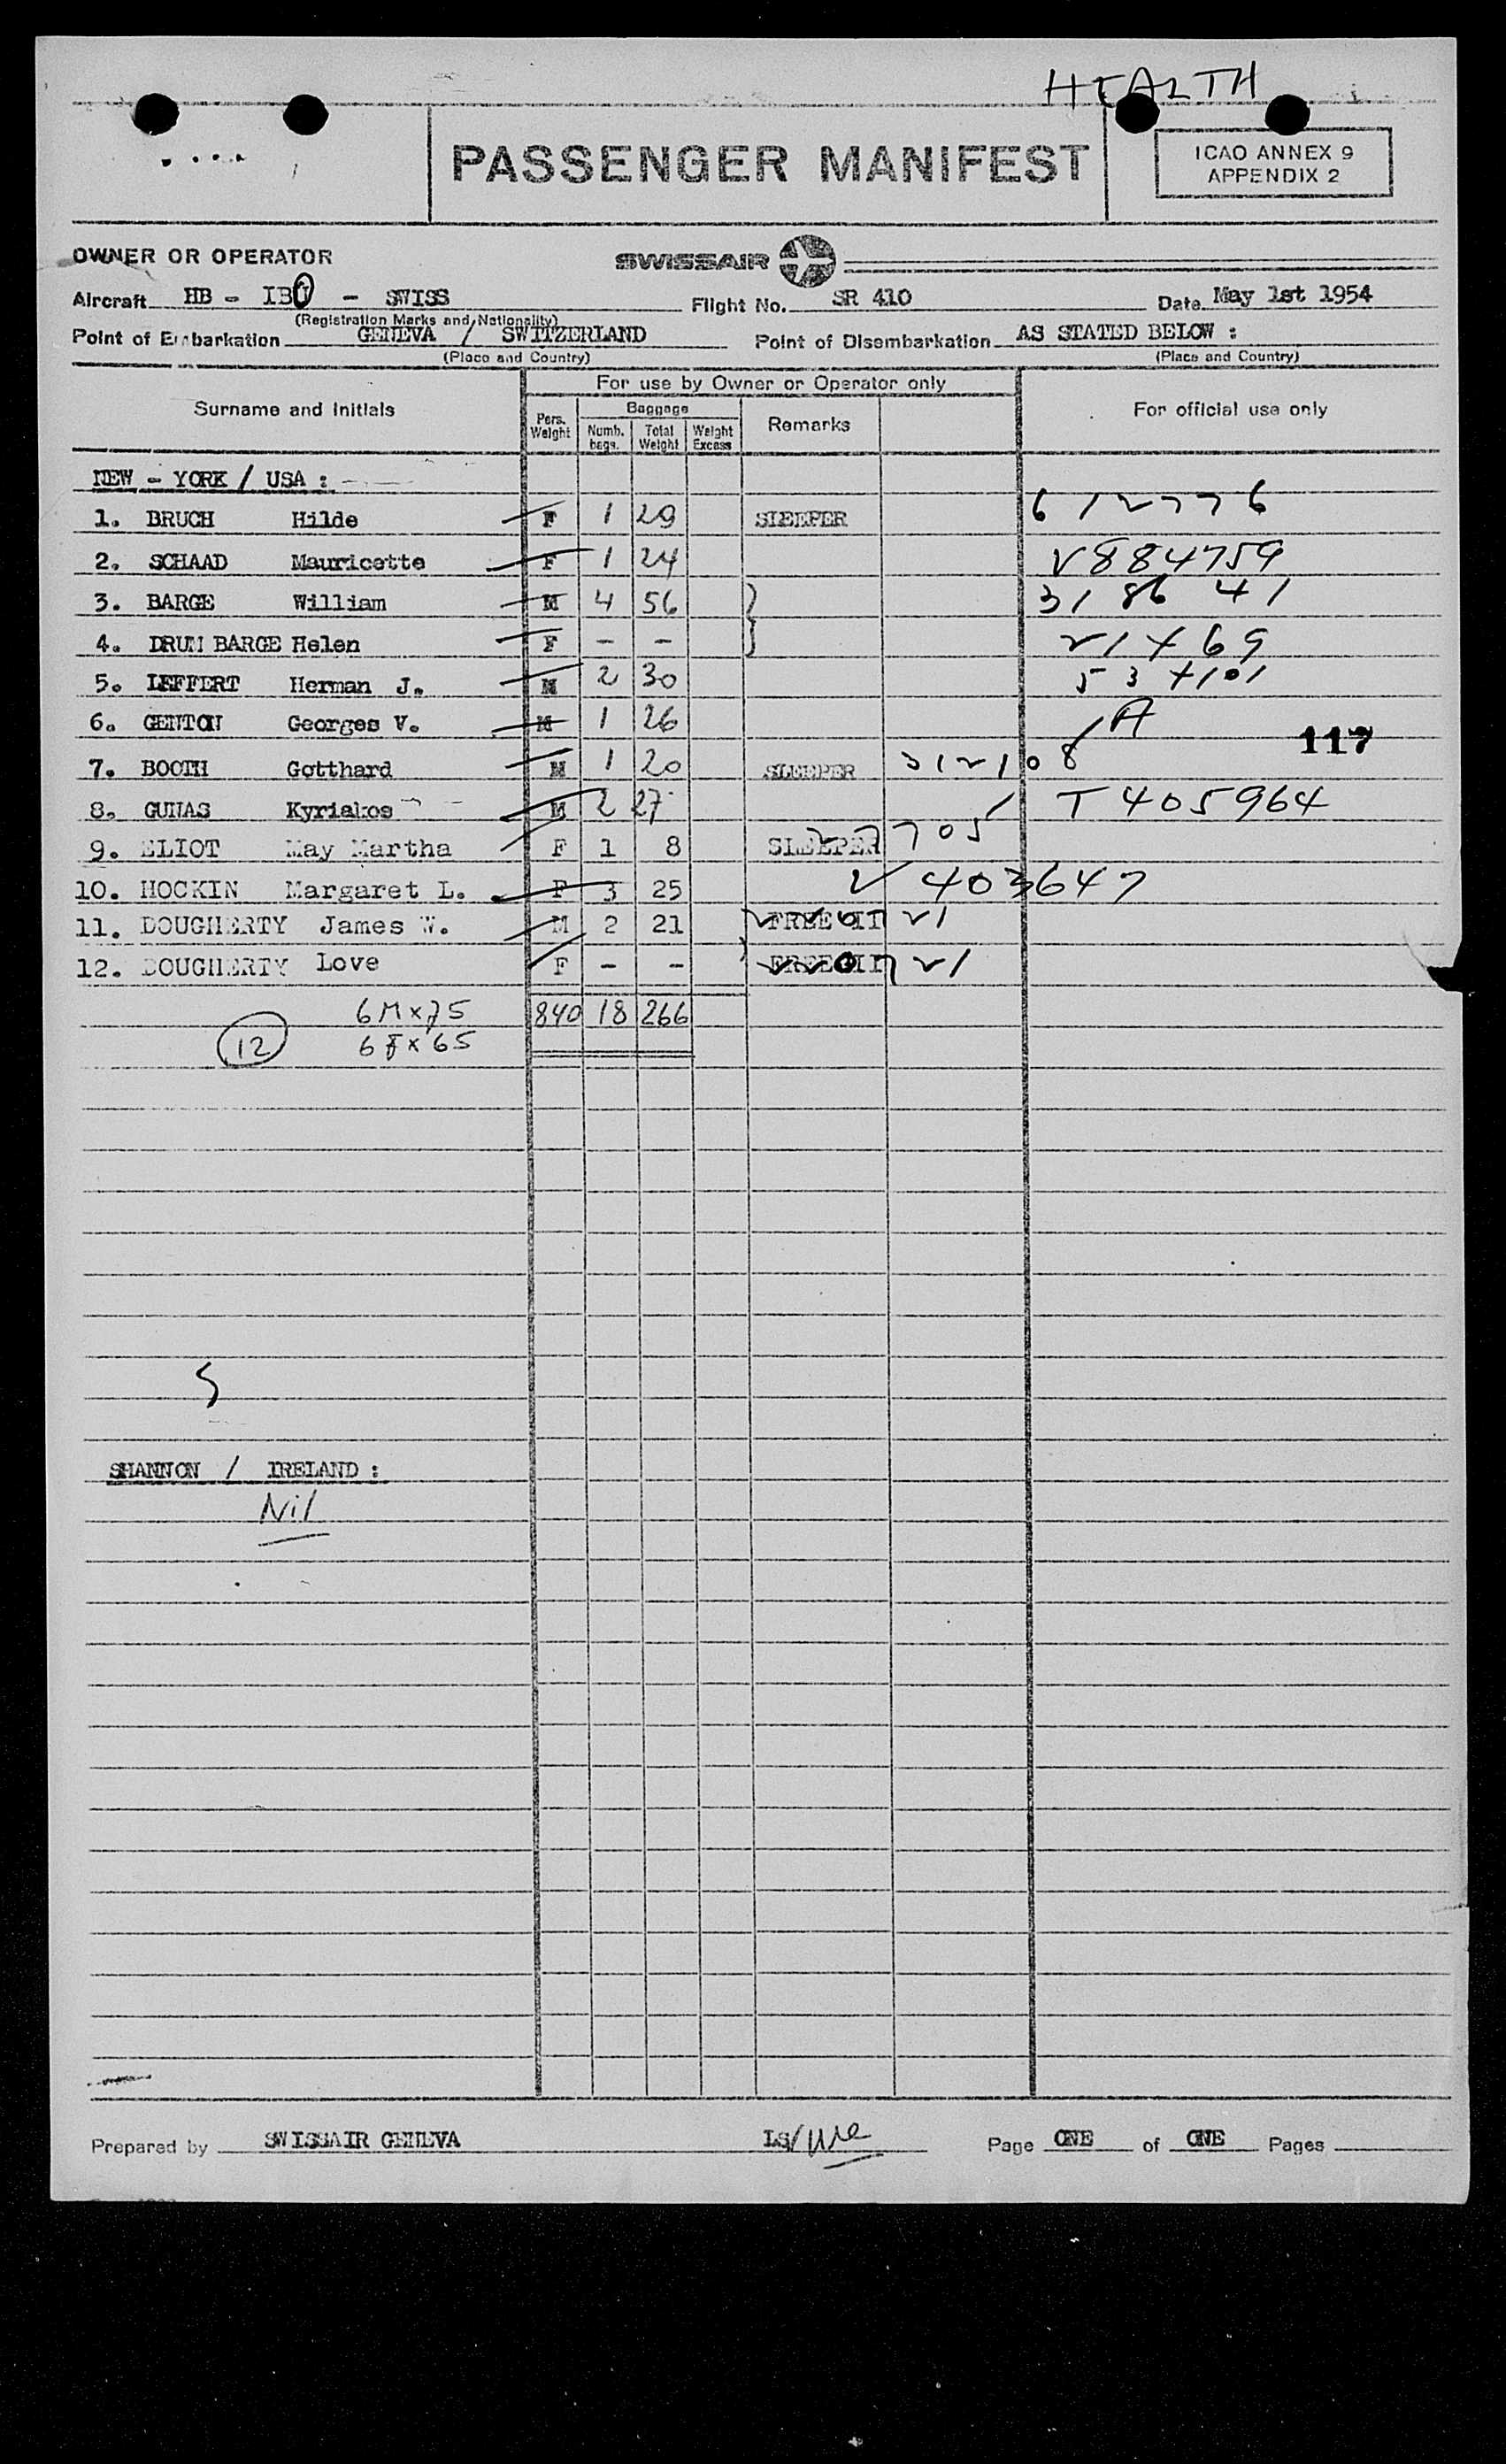 HEALTH
PASSENGER MANIFEST
ICAO ANNEX 9
APPENDIX 2
OWNER OR OPERATOR
SWISSAIR
Aircraft HB - IBU - SWISS Flight No. SR 410 Date May 1st 1954
(Registration Marks and Nationality)
Point of Embarkation GENEVA / SWITZERLAND Point of Disembarkation AS STATED BELOW :
(Place and Country) (Place and Country)
For use by Owner or Operator only
Surname and Initials Pers. Weight Baggage Numb. bags. Total Weight Weight Excess Remarks For official use only
NEW - YORK / USA :
1. BRUCH Hilde F 1 29 SLEEPER 612776
2. SCHAAD Mauricette F 1 24 V884759
3. BARGE William M 4 56 318641
4. DRUM BARGE Helen F - -
5. LEFFERT Herman J. M 2 30
6. GENTON Georges V. M 1 26 A
117
7. BOOTH Gotthard M 1 20 SLEEPER 312108
8. GUNAS Kyriakos M 2 27 T405964
9. ELIOT May Martha F 1 8 SLEEPER
10. HOCKIN Margaret L. F 3 25 V 403647
11. DOUGHERTY James W. M 2 21
12. DOUGHERTY Love F - -
6M x 75 840 18 266
12 6F x 65
S
SHANNON / IRELAND :
Nil
Prepared by SWISSAIR GENEVA LS/ Page ONE of ONE Pages